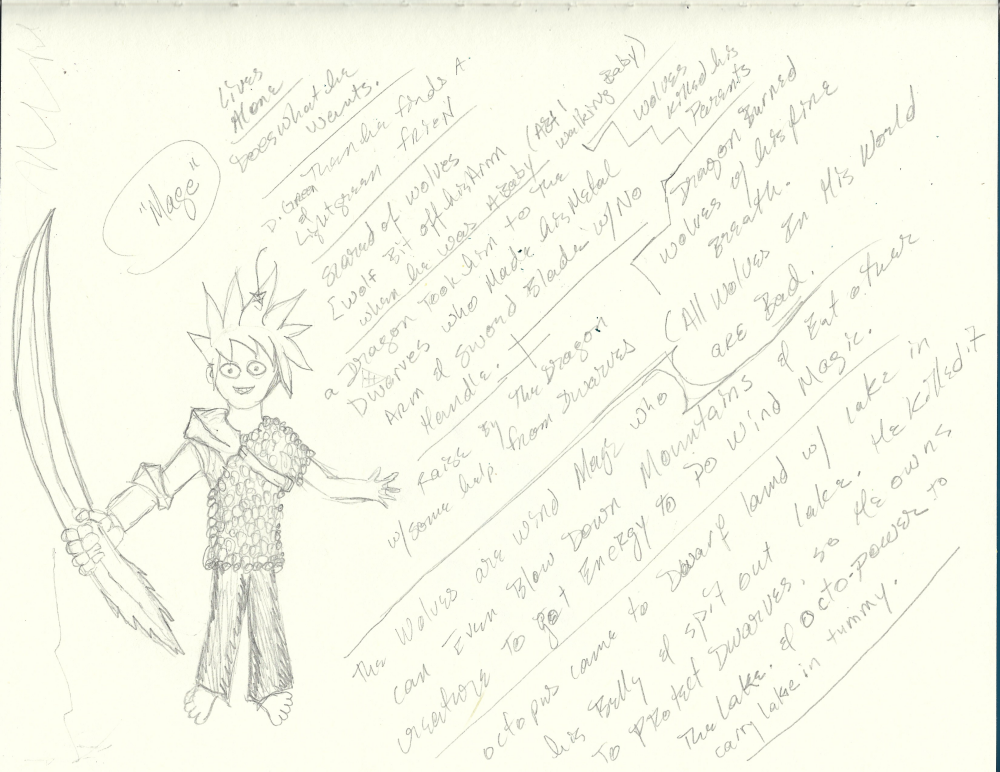 Lives
Alone
Does what he
wants.
"Mage"
Than he finds A.
D. Green &
Light green frieN
Scared of wolves
[wolf Bit off his Arm (At 1
when he was A Baby walking Baby)
wolves
killed his
Parents
a Dragon Took him to the
Dwarves who made his Metal
Arm & Sword Blade w/ No
Handle.
Dragon Burned
wolves w/ his fire
Breath.
Raise By The Dragon
w/ some help from Dwarves
(All wolves In His World
are Bad.
The Wolves are wind Mage who
can Even Blow Down Mountains & Eat other
creature To get Energy to Do Wind Magic.
octopus came to Dwarf land w/ lake in
his Belly & spit out lake. He killed it
To Protect Dwarves, so He owns
The Lake. & octo-power to
carry lake in tummy.